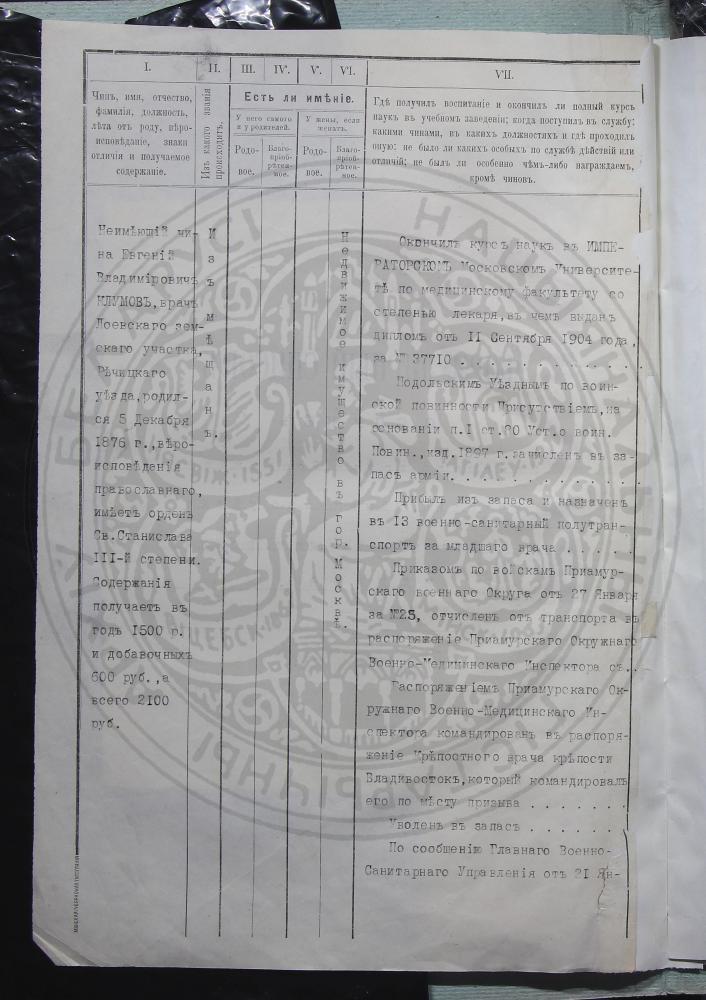 I.
II.
III.
IV.
V.
VI.
VII.
Чинъ, имя, отчество,
фамилія, должность,
лѣта отъ роду, вѣро-
исповѣданіе, знаки
отличія и получаемое
содержаніе.
Изъ какого званія
происходитъ.
Есть ли имѣніе.
У него самого
и у родителей.
У жены, если
женатъ.
Родо-
вое.
Благо-
пріобрѣ-
тенное.
Родо-
вое.
Благо-
пріобрѣ-
тенное.
Гдѣ получилъ воспитаніе и окончилъ ли полный курсъ
наукъ въ учебномъ заведеніи; когда поступилъ въ службу;
какими чинами, въ какихъ должностяхъ и гдѣ проходилъ
оную; не было ли какихъ особыхъ по службѣ дѣйствій или
отличій; не былъ ли особенно чѣмъ-либо награждаемъ,
кромѣ чиновъ.
Неимѣющій чи-
на Евгеній
Владиміровичъ
КЛУМОВЪ, врачъ
Лоевскаго зем-
скаго участка,
Рѣчицкаго
уѣзда, родил-
ся 5 Декабря
1876 г., вѣро-
исповѣданія
православнаго,
имѣетъ орденъ
Св. Станислава
III-й степени.
Содержанія
получаетъ въ
годъ 1500 р.
и добавочныхъ
600 руб., а
всего 2100
руб.
Изъ мѣщанъ.
Недвижимое имущество въ гор. Москвѣ.
Окончилъ курсъ наукъ въ ИМПЕ-
РАТОРСКОМЪ Московскомъ Университе-
тѣ по медицинскому факультету со
степенью лекаря, въ чемъ выданъ
дипломъ отъ II Сентября 1904 года,
за № 37710 . . . . . . . . . . .
Подольскимъ Уѣзднымъ по воин-
ской повинности Присутствіемъ, на
основаніи п. I ст. 80 Уст. о воин.
Повин., изд. 1897 г. зачисленъ въ за-
пасъ арміи. . . . . . . . . . . .
Прибылъ изъ запаса и назначенъ
въ I3 военно-санитарный полутран-
спортъ за младшаго врача . . . . .
Приказомъ по войскамъ Приамур-
скаго военнаго Округа отъ 27 Января
за № 25, отчисленъ отъ транспорта въ
распоряженіе Приамурскаго Окружнаго
Военно-Медицинскаго Инспектора съ..
Распоряженіемъ Приамурскаго Ок-
ружнаго Военно-Медицинскаго Ин-
спектора командированъ въ распоря-
женіе Крѣпостного врача крѣпости
Владивостокъ, который командировалъ
его по мѣсту призыва . . . . . . .
Уволенъ въ запасъ . . . . . .
По сообщенію Главнаго Военно-
Санитарнаго Управленія отъ 2I Ян-